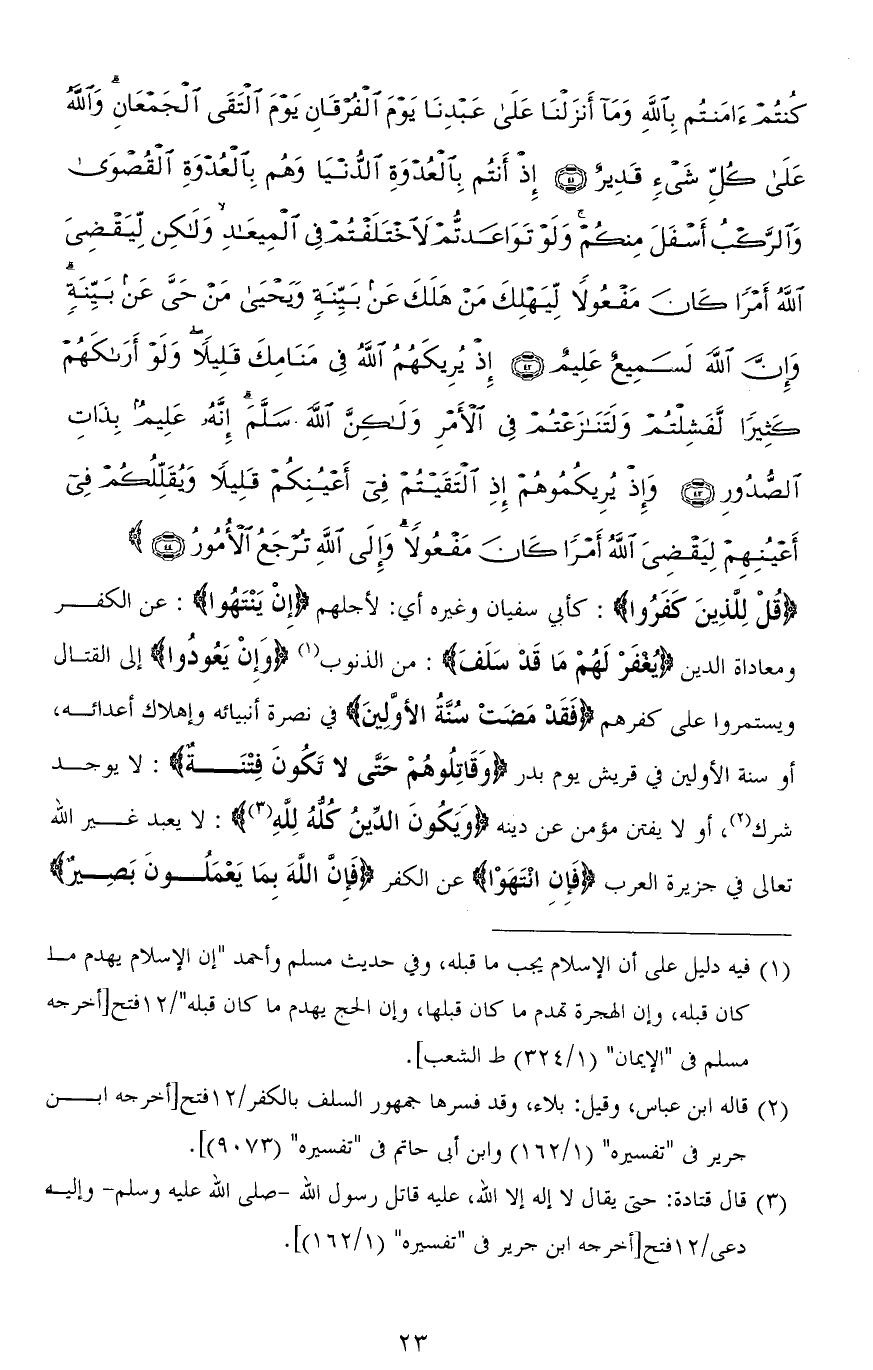 كُنتُمْ ءَامَنتُم بِٱللَّهِ وَمَآ أَنزَلْنَا عَلَىٰ عَبْدِنَا يَوْمَ ٱلْفُرْقَانِ يَوْمَ ٱلْتَقَى ٱلْجَمْعَانِ ۗ وَٱللَّهُ
عَلَىٰ كُلِّ شَىْءٍ قَدِيرٌ ۝٤١ إِذْ أَنتُم بِٱلْعُدْوَةِ ٱلدُّنْيَا وَهُم بِٱلْعُدْوَةِ ٱلْقُصْوَىٰ
وَٱلرَّكْبُ أَسْفَلَ مِنكُمْ ۚ وَلَوْ تَوَاعَدتُّمْ لَٱخْتَلَفْتُمْ فِى ٱلْمِيعَـٰدِ ۙ وَلَـٰكِن لِّيَقْضِىَ
ٱللَّهُ أَمْرًا كَانَ مَفْعُولًا لِّيَهْلِكَ مَنْ هَلَكَ عَنۢ بَيِّنَةٍ وَيَحْيَىٰ مَنْ حَىَّ عَنۢ بَيِّنَةٍ ۗ
وَإِنَّ ٱللَّهَ لَسَمِيعٌ عَلِيمٌ ۝٤٢ إِذْ يُرِيكَهُمُ ٱللَّهُ فِى مَنَامِكَ قَلِيلًا ۖ وَلَوْ أَرَىٰكَهُمْ
كَثِيرًا لَّفَشِلْتُمْ وَلَتَنَـٰزَعْتُمْ فِى ٱلْأَمْرِ وَلَـٰكِنَّ ٱللَّهَ سَلَّمَ ۗ إِنَّهُۥ عَلِيمٌۢ بِذَاتِ
ٱلصُّدُورِ ۝٤٣ وَإِذْ يُرِيكُمُوهُمْ إِذِ ٱلْتَقَيْتُمْ فِىٓ أَعْيُنِكُمْ قَلِيلًا وَيُقَلِّلُكُمْ فِىٓ
أَعْيُنِهِمْ لِيَقْضِىَ ٱللَّهُ أَمْرًا كَانَ مَفْعُولًا ۗ وَإِلَى ٱللَّهِ تُرْجَعُ ٱلْأُمُورُ ۝٤٤ ﴾
﴿قُلْ لِلَّذِينَ كَفَرُوا﴾ : كأبي سفيان وغيره أي: لأجلهم ﴿إِنْ يَنْتَهُوا﴾ : عن الكفر
ومعاداة الدين ﴿يُغْفَرْ لَهُمْ مَا قَدْ سَلَفَ﴾ : من الذنوب(١) ﴿وَإِنْ يَعُودُوا﴾ إلى القتال
ويستمروا على كفرهم ﴿فَقَدْ مَضَتْ سُنَّةُ الأوَّلِينَ﴾ في نصرة أنبيائه وإهلاك أعدائه،
أو سنة الأولين في قريش يوم بدر ﴿وَقَاتِلُوهُمْ حَتَّى لا تَكُونَ فِتْنَةٌ﴾ : لا يوجد
شرك(٢)، أو لا يفتن مؤمن عن دينه ﴿وَيَكُونَ الدِّينُ كُلُّهُ لِلَّهِ(٣)﴾ : لا يعبد غير الله
تعالى في جزيرة العرب ﴿فَإِنِ انْتَهَوْا﴾ عن الكفر ﴿فَإِنَّ اللَّهَ بِمَا يَعْمَلُونَ بَصِيرٌ﴾
(١) فيه دليل على أن الإسلام يجب ما قبله، وفي حديث مسلم وأحمد "إن الإسلام يهدم ما
كان قبله، وإن الهجرة تهدم ما كان قبلها، وإن الحج يهدم ما كان قبله"/١٢فتح[أخرجه
مسلم فى "الإيمان" (٣٢٤/١) ط الشعب].
(٢) قاله ابن عباس، وقيل: بلاء، وقد فسرها جمهور السلف بالكفر/١٢فتح[أخرجه ابن
جرير فى "تفسيره" (١٦٢/١) وابن أبى حاتم فى "تفسيره" (٩٠٧٣)].
(٣) قال قتادة: حتى يقال لا إله إلا الله، عليه قاتل رسول الله -صلى الله عليه وسلم- وإليه
دعى/١٢فتح[أخرجه ابن جرير فى "تفسيره" (١٦٢/١)].
٢٣